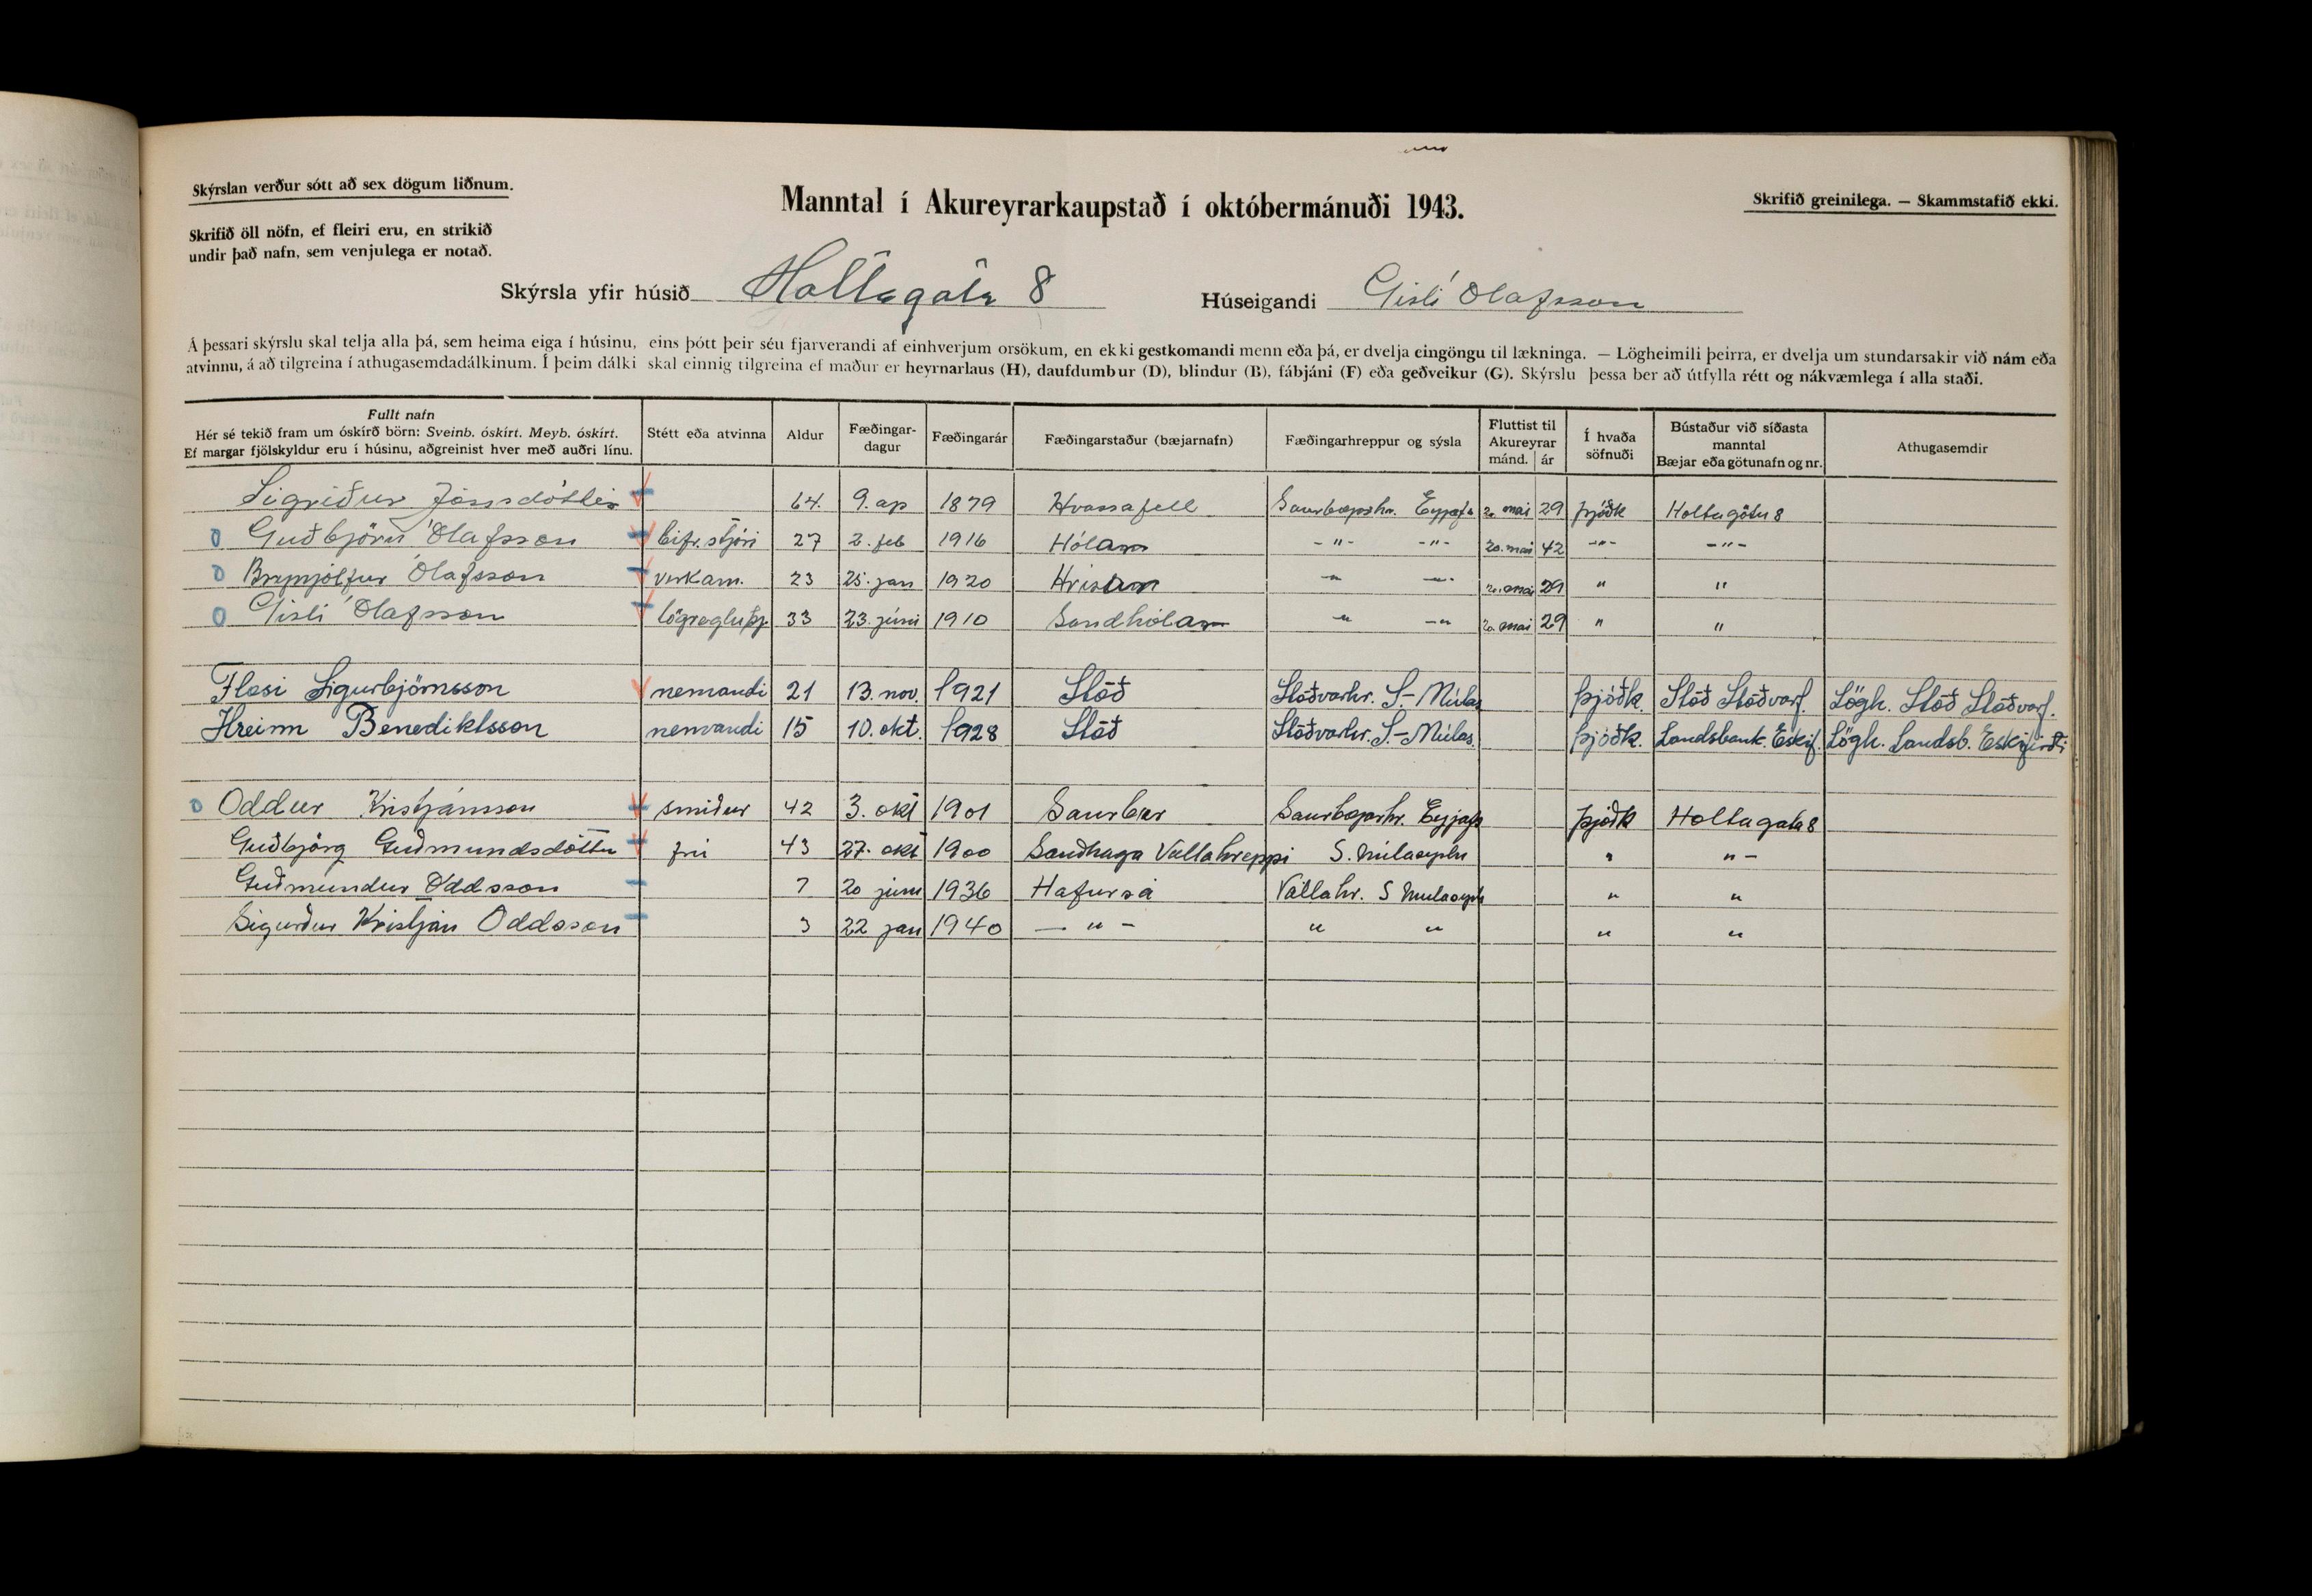 Skýrslan verður sótt að sex dögum liðnum.
Skrifið öll nöfn, ef fleiri eru, en strikið
undir það nafn, sem venjulega er notað.
Manntal í Akureyrarkaupstað í októbermánuði 1943.
Skrifið greinilega. — Skammstafið ekki.
Skýrsla yfir húsið Holtagata 8 Húseigandi Gísli Ólafsson
Á þessari skýrslu skal telja alla þá, sem heima eiga í húsinu, eins þótt þeir séu fjarverandi af einhverjum orsökum, en ekki gestkomandi menn eða þá, er dvelja eingöngu til lækninga. — Lögheimili þeirra, er dvelja um stundarsakir við nám eða
atvinnu, á að tilgreina í athugasemdadálkinum. Í þeim dálki skal einnig tilgreina ef maður er heyrnarlaus (H), daufdumbur (D), blindur (B), fábjáni (F) eða geðveikur (G). Skýrslu þessa ber að útfylla rétt og nákvæmlega í alla staði.
Fullt nafn
Hér sé tekið fram um óskírð börn: Sveinb. óskírt. Meyb. óskírt.
Ef margar fjölskyldur eru í húsinu, aðgreinist hver með auðri línu.
Stétt eða atvinna
Aldur
Fæðingar-
dagur
Fæðingarár
Fæðingarstaður (bæjarnafn)
Fæðingarhreppur og sýsla
Fluttist til
Akureyrar
mánd. ár
Í hvaða
söfnuði
Bústaður við síðasta
manntal
Bæjar eða götunafn og nr.
Athugasemdir
Sigríður Jónsdóttir 64. 9. ap 1879 Hvassafell Saurbæjarhr. Eyjafs 20 mai 29 þjóðk Holtagötu 8
o Guðbjörn Ólafsson bifr.stjóri 27 2. feb 1916 Hólum -"- -"- 20. mai 42 -"- -"-
o Brynjólfur Ólafsson verkam. 23 25. jan 1920 Hrísum " " 20. mai 29 " "
o Gísli Ólafsson lögregluþj 33 23. júni 1910 Sandhólum " " 20 mai 29 " "
Flosi Sigurbjörnsson nemandi 21 13. nov. 1921 Stöð Stöðvarhr. S.-Múlas þjóðk. Stöð Stöðvarf. Lögh. Stöð Stöðvarf.
Hreinn Benediktsson nemandi 15 10. okt. 1928 Stöð Stöðvarhr. S.-Múlas. þjóðk. Landsbank. Eskif. Lögh. Landsb. Eskifirði
o Oddur Kristjánsson smiður 42 3. okt 1901 Saurbær Saurbæjarhr. Eyjafs þjóðk Holtagata 8
Guðbjörg Guðmundsdóttir frú 43 27. okt 1900 Sandhaga Vallahreppi S. Múlasyslu " " -
Guðmundur Oddsson 7 20 júni 1936 Hafursá Vallahr. S Mulasysl " "
Sigurður Kristján Oddsson 3 22 jan 1940 — " - " " " "